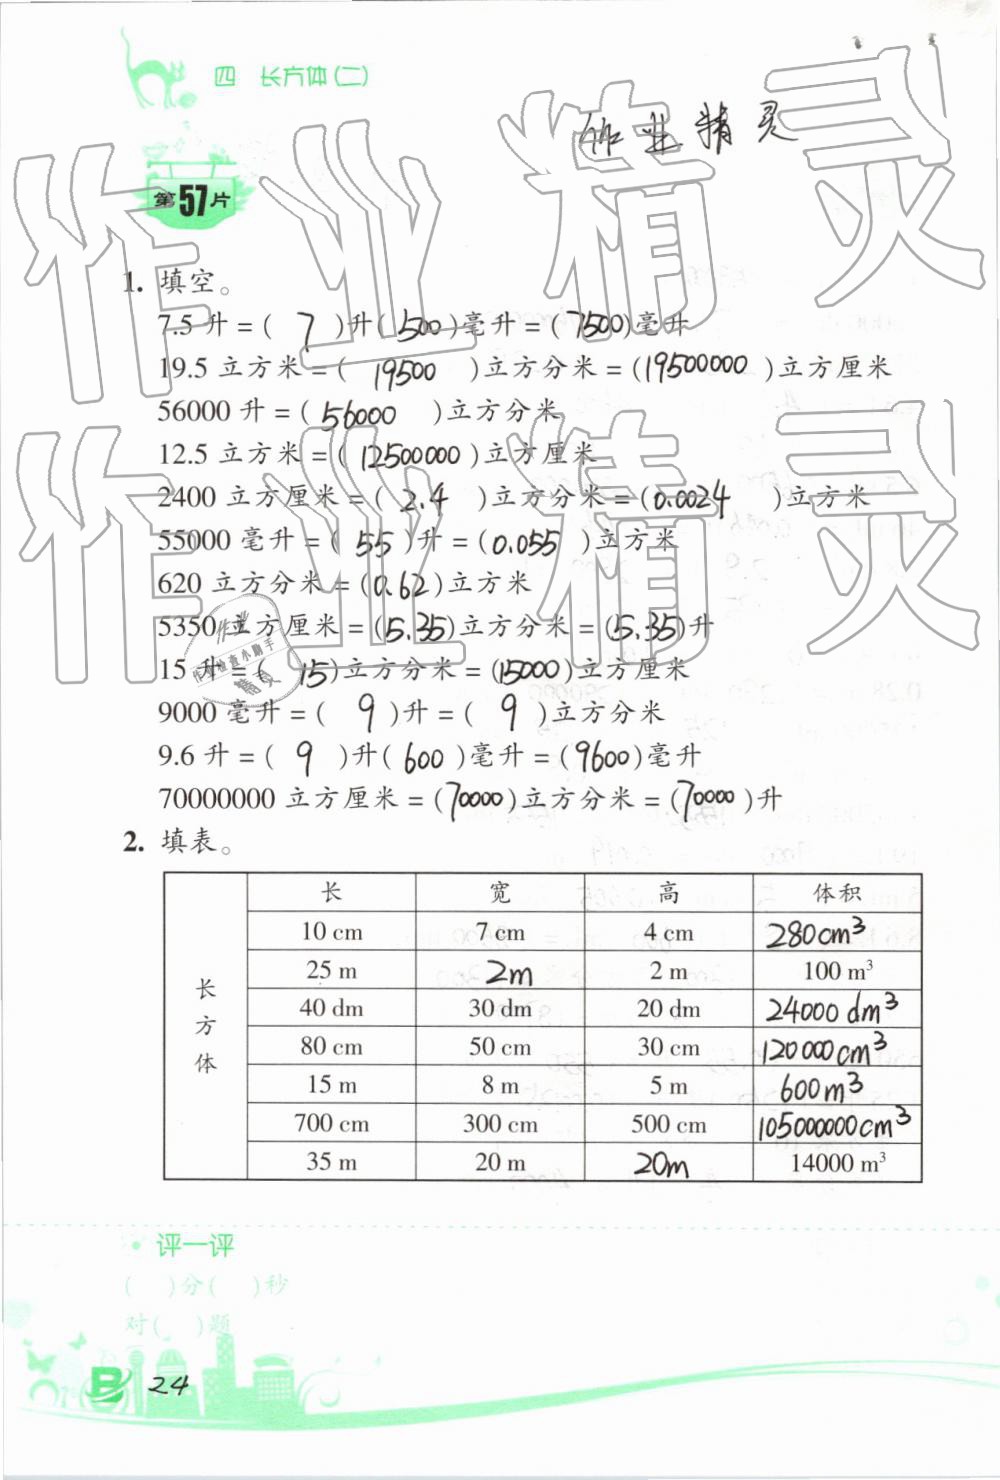 四 长方体(二)
作业精灵
第57片
1. 填空。
7.5 升 = ( 7 )升( 500 )毫升 = ( 7500 )毫升
19.5 立方米 = ( 19500 )立方分米 = ( 19500000 )立方厘米
56000 升 = ( 56000 )立方分米
12.5 立方米 = ( 12500000 )立方厘米
2400 立方厘米 = ( 2.4 )立方分米 = ( 0.0024 )立方米
55000 毫升 = ( 55 )升 = ( 0.055 )立方米
620 立方分米 = ( 0.62 )立方米
5350 立方厘米 = ( 5.35 )立方分米 = ( 5.35 )升
15 升 = ( 15 )立方分米 = ( 15000 )立方厘米
9000 毫升 = ( 9 )升 = ( 9 )立方分米
9.6 升 = ( 9 )升( 600 )毫升 = ( 9600 )毫升
70000000 立方厘米 = ( 70000 )立方分米 = ( 70000 )升
2. 填表。
长方体
长 宽 高 体积
10 cm 7 cm 4 cm 280cm³
25 m 2m 2 m 100 m³
40 dm 30 dm 20 dm 24000 dm³
80 cm 50 cm 30 cm 120000cm³
15 m 8 m 5 m 600m³
700 cm 300 cm 500 cm 105000000cm³
35 m 20 m 20m 14000 m³
评一评
( )分( )秒
对( )题
B 24
作业精灵
作业精灵
作业
作业检查小助手
精灵